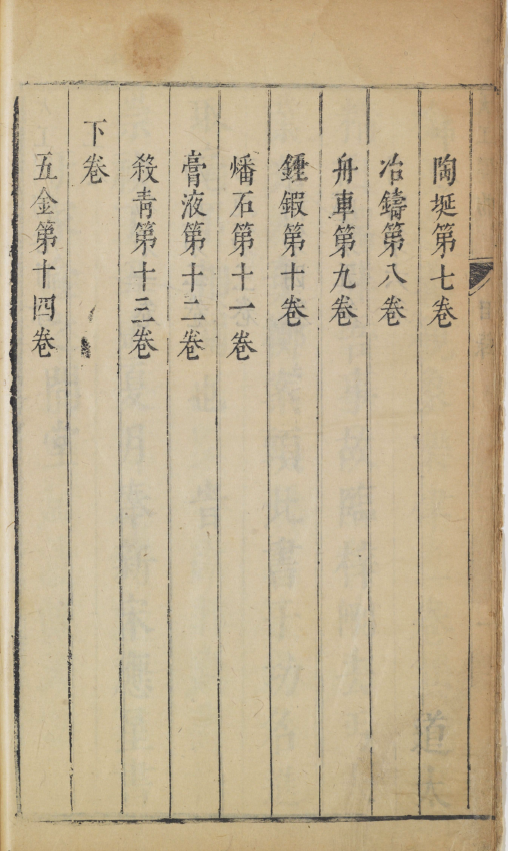 陶埏第七卷
冶鑄第八卷
舟車第九卷
錘鍜第十卷
燔石第十一卷
膏液第十二卷
殺青第十三卷
下卷
五金第十四卷